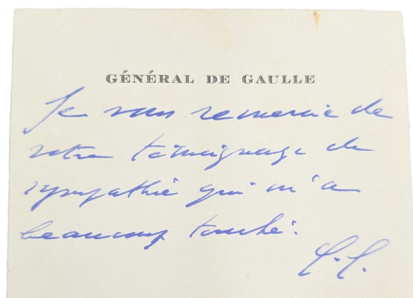 GÉNÉRAL DE GAULLE
Je vous remercie de
votre témoignage de
sympathie qui m'a
beaucoup touché.
C.G.